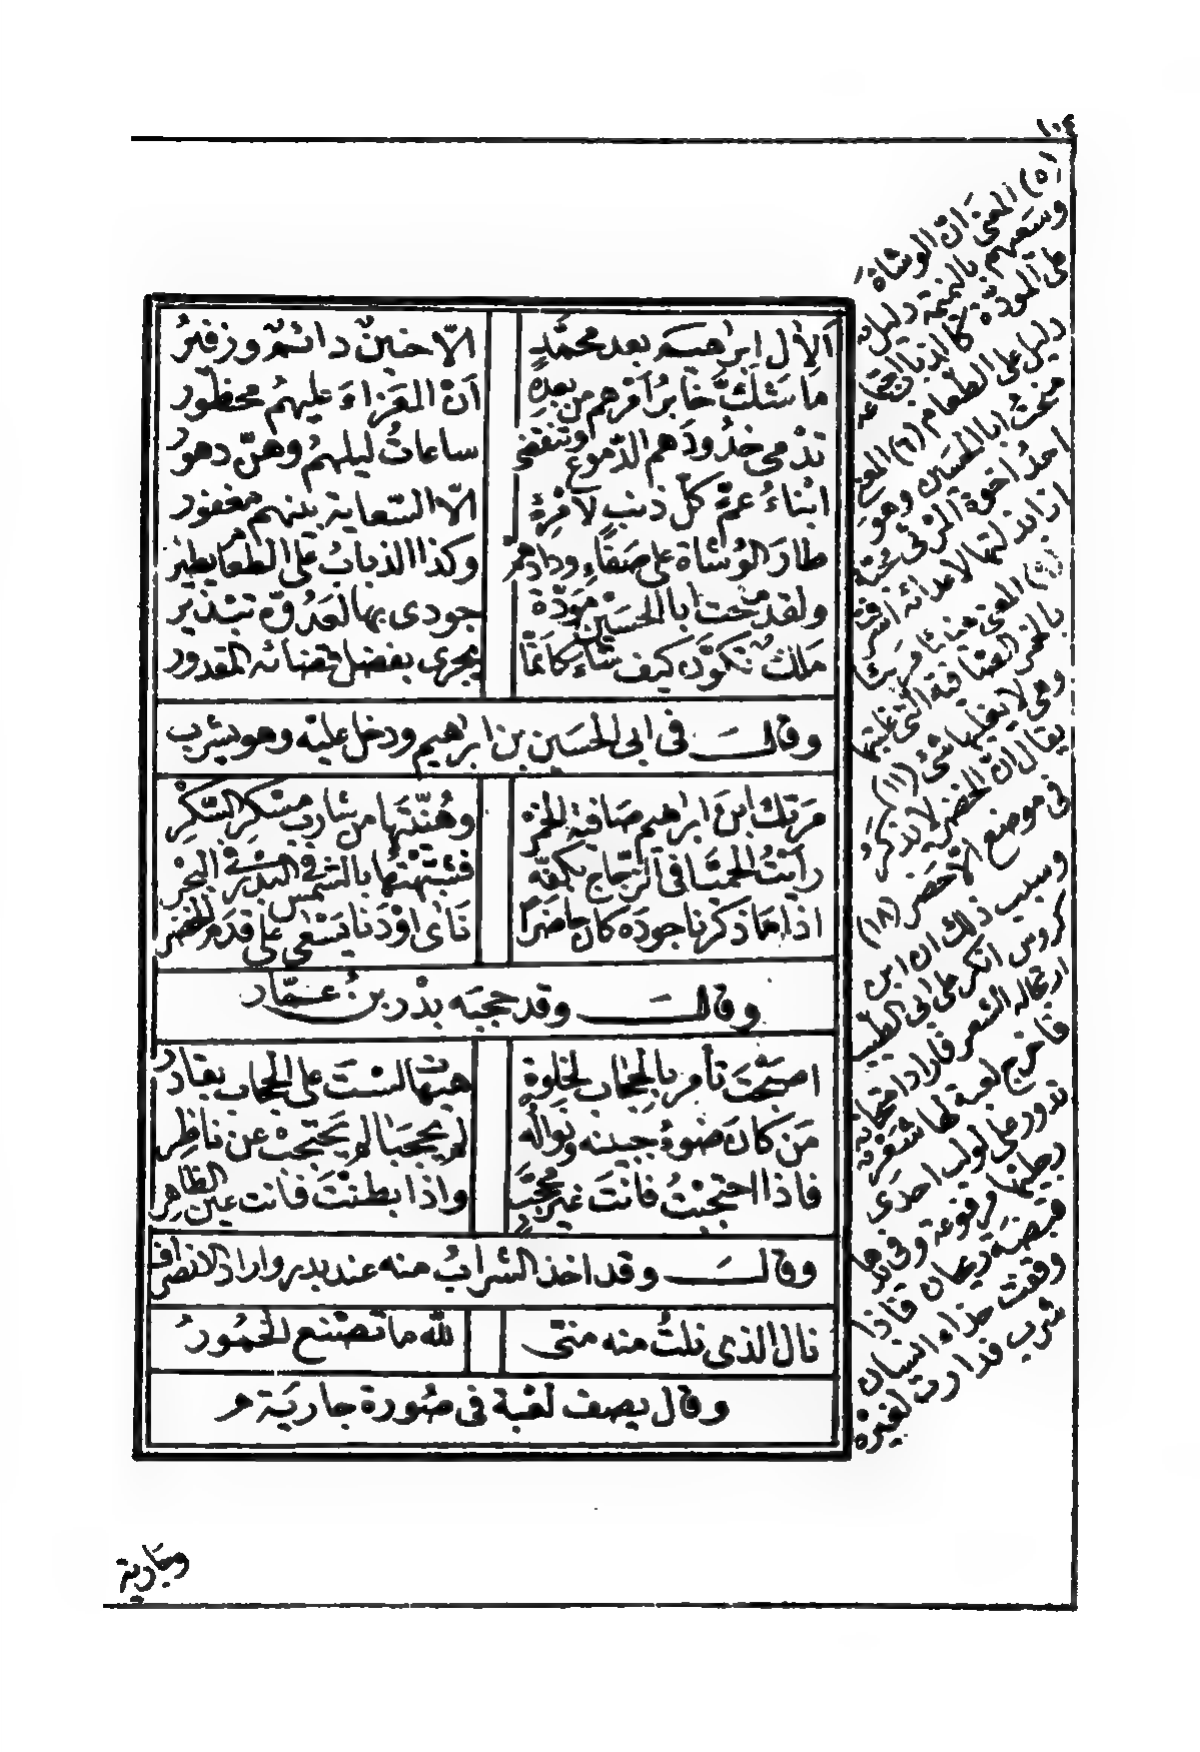 ١٠٤
أَلِآلِ ابراهيم بعد محمَّدٍ الّا حنينٌ دائمٌ وزفيرُ
مَا شكَّ خابرُ أمرهم من بعدِهِ أنّ العَزاءَ عليهمُ محظورُ
تدْمى خدُودُهم الدّموع وتنقضى ساعاتُ ليلهمُ وهنّ دهورُ
ابناءُ عمٍّ كلّ ذنبٍ لامرِئٍ الّا السّعاية بينهم مغفور
طارَ الوُشاة على صَفاءِ ودادهم وكذا الذبابُ على الطّعام يطيرُ
ولقد منحت ابا الحسَين مودّة جودى بها لعدُوّه تبذير
ملكٌ تكوّن كيف شاءَ كانّما يجرى بفضل قضائه المقدور
وقالـــ فى ابى الحسَين بن ابراهيم ودخل عليه وهو يشرب
مَرتكَ ابنَ ابراهيم صَافية الخمر وهُنّئتَها من شاربٍ مسْكِرِ السّكْرِ
رأيتُ الحميّا فى الزّجاج بكفّه فشبّهتها بالشّمس فى البدر فى البحر
اذا ما ذكرنا جودَه كان حاضرًا نَأى اوْ دنا يَسْعى على قدَم الخضر
وقالـــ وقد حجبَه بدْر بنُ عمّار
اصبَحْتَ تأمر بالحجاب لخلوةٍ هيْهات لسْتَ على الحجاب بقادر
مَن كانَ ضوءُ جبينه ونوالُه لم يحجبا لم يَحْتجبْ عن ناظِر
فاذا احتجبْتُ فانتَ غير محجّبٍ واذا بطنْتَ فانت عين الظّاهِر
وقالـــ وقد اخذ الشّرابُ منه عند بدر واراد الانصراف
نال الذى نلتُ منه منّى للّه ما تصْنع الخمُورُ
وقال يصف لعْبة فى صُورة جاريَة م
(٥) المعنى انّ الوشاة
وسَعيهم بالنميمة دليل
على المودّة كما انّ الذباب اجتماعه
دليل على الطعام (٦) المعنى
منحتُ ابا الحسَين وهو
احدُ اخوة المرثى محبّة
انا بذلتها لاعدائه اسرفت
بالخمر الصّافية التى
وهى لا يغلبها شئ (١١)
يقال انّ الخضر لا يذكر
فى موضع الا حَضر (١٨)
وسبب ذلك ان ابن
كروس انكر على ابى الطيب
ارتجاله الشعر فاراد امتحانه
فاخرج لعبة لها شعر
تدور على لولب احدى
رجليها مرفوعة وفى يدها
قبضة ريحان فاذا
وقفت حذاء انسان
شرب فدارت لغيره
وجارية